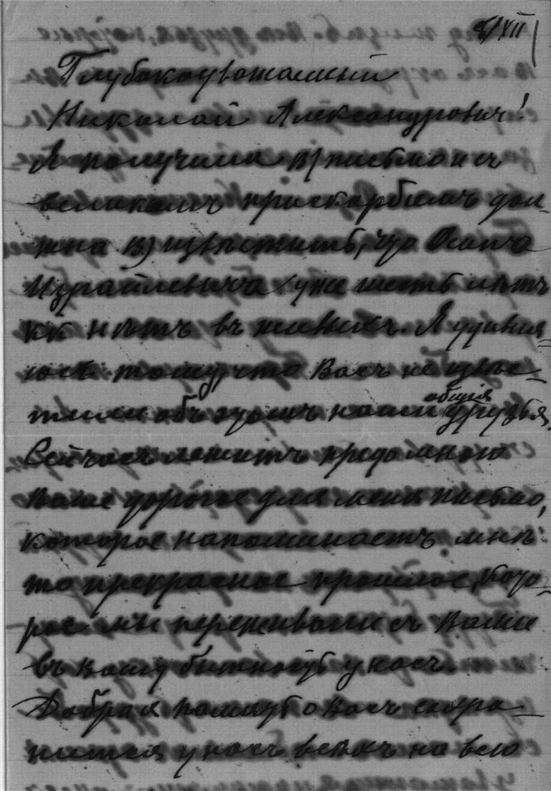 8/XII
Глубокоуважаемый
Николай Александрович!
Я получила В/ письмо и съ
великимъ прискорбiемъ дол-
жна В/ извѣстить, что Осипа
Израйлевича уже шесть лѣтъ
какъ нѣтъ въ живыхъ. Я удивля-
юсь тому что Васъ не извѣс-
тили объ этомъ наши общiя друзья.
Сейчасъ лежитъ предо мною
Ваше дорогое для меня письмо,
которое напоминаетъ мнѣ
то прекрасное прошлое, кото-
рое мы переживали съ Вами
въ Вашу бытность у насъ.
Добрая память о Васъ сохра-
нится у насъ всѣхъ на всю